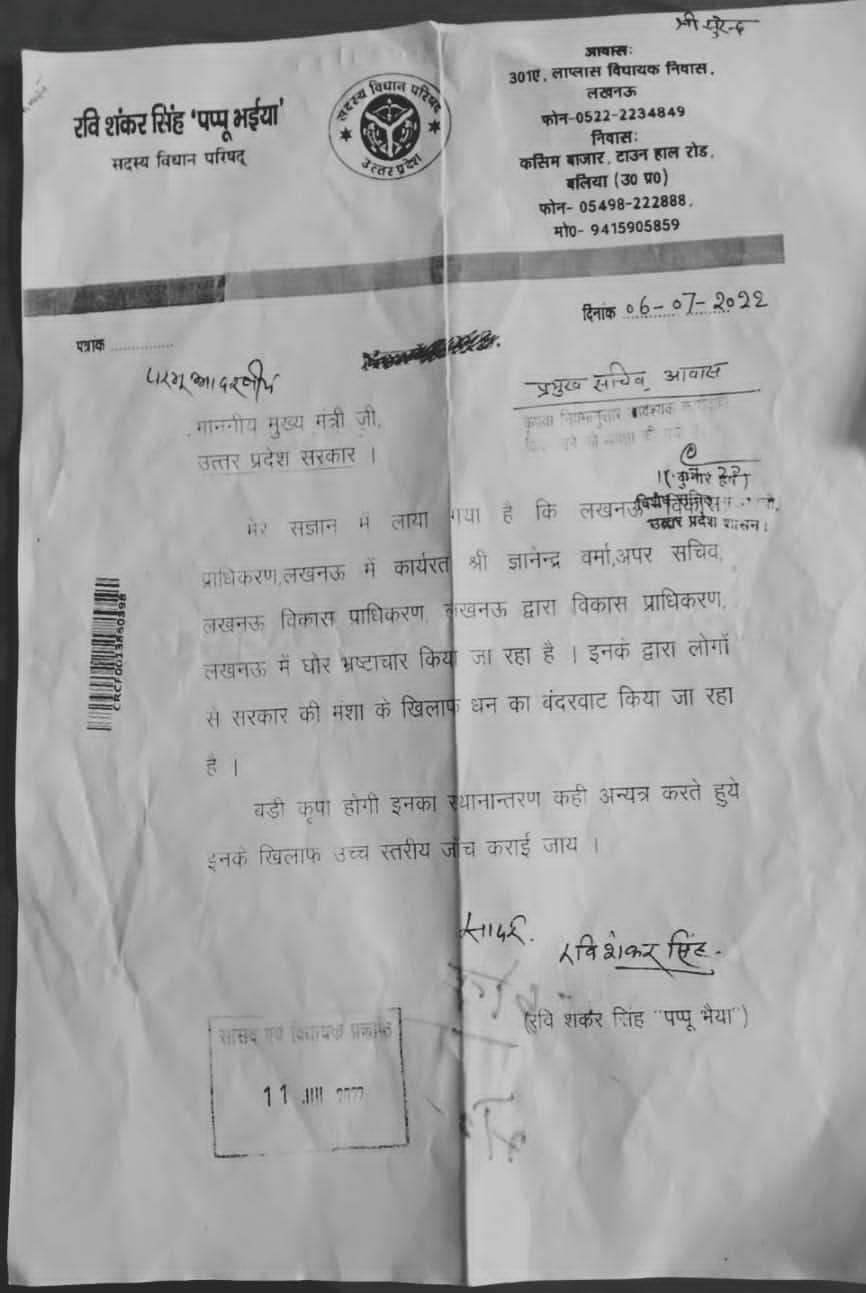 श्री सुरेन्द्र
रवि शंकर सिंह 'पप्पू भईया'
सदस्य विधान परिषद्
सदस्य विधान परिषद
उत्तर प्रदेश
आवासः
301ए, लाप्लास विधायक निवास,
लखनऊ
फोन-0522-2234849
निवासः
कसिम बाजार, टाउन हाल रोड,
बलिया (उ0 प्र0)
फोन- 05498-222888,
मो0- 9415905859
दिनांक 06-07-2022
पत्रांक ...............
परम् आदरणीय
प्रमुख सचिव, आवास
कृपया नियमानुसार आवश्यक
माननीय मुख्य मंत्री जी,
उत्तर प्रदेश सरकार ।
उत्तर प्रदेश शासन।
मेरे सज्ञान में लाया गया है कि लखनऊ विकास
प्राधिकरण,लखनऊ में कार्यरत श्री ज्ञानेन्द्र वर्मा,अपर सचिव,
लखनऊ विकास प्राधिकरण, लखनऊ द्वारा विकास प्राधिकरण,
लखनऊ में घोर भ्रष्टाचार किया जा रहा है । इनके द्वारा लोगों
से सरकार की मंशा के खिलाफ धन का बंदरवाट किया जा रहा
है ।
वडी कृपा होगी इनका स्थानान्तरण कही अन्यत्र करते हुये
इनके खिलाफ उच्च स्तरीय जाँच कराई जाय ।
CRCF0013860398
सादर.
रवि शंकर सिंह.
(रवि शंकर सिंह "पप्पू भैया")
सांसद एवं विधायक प्रकोष्ठ
11 JUL 2022